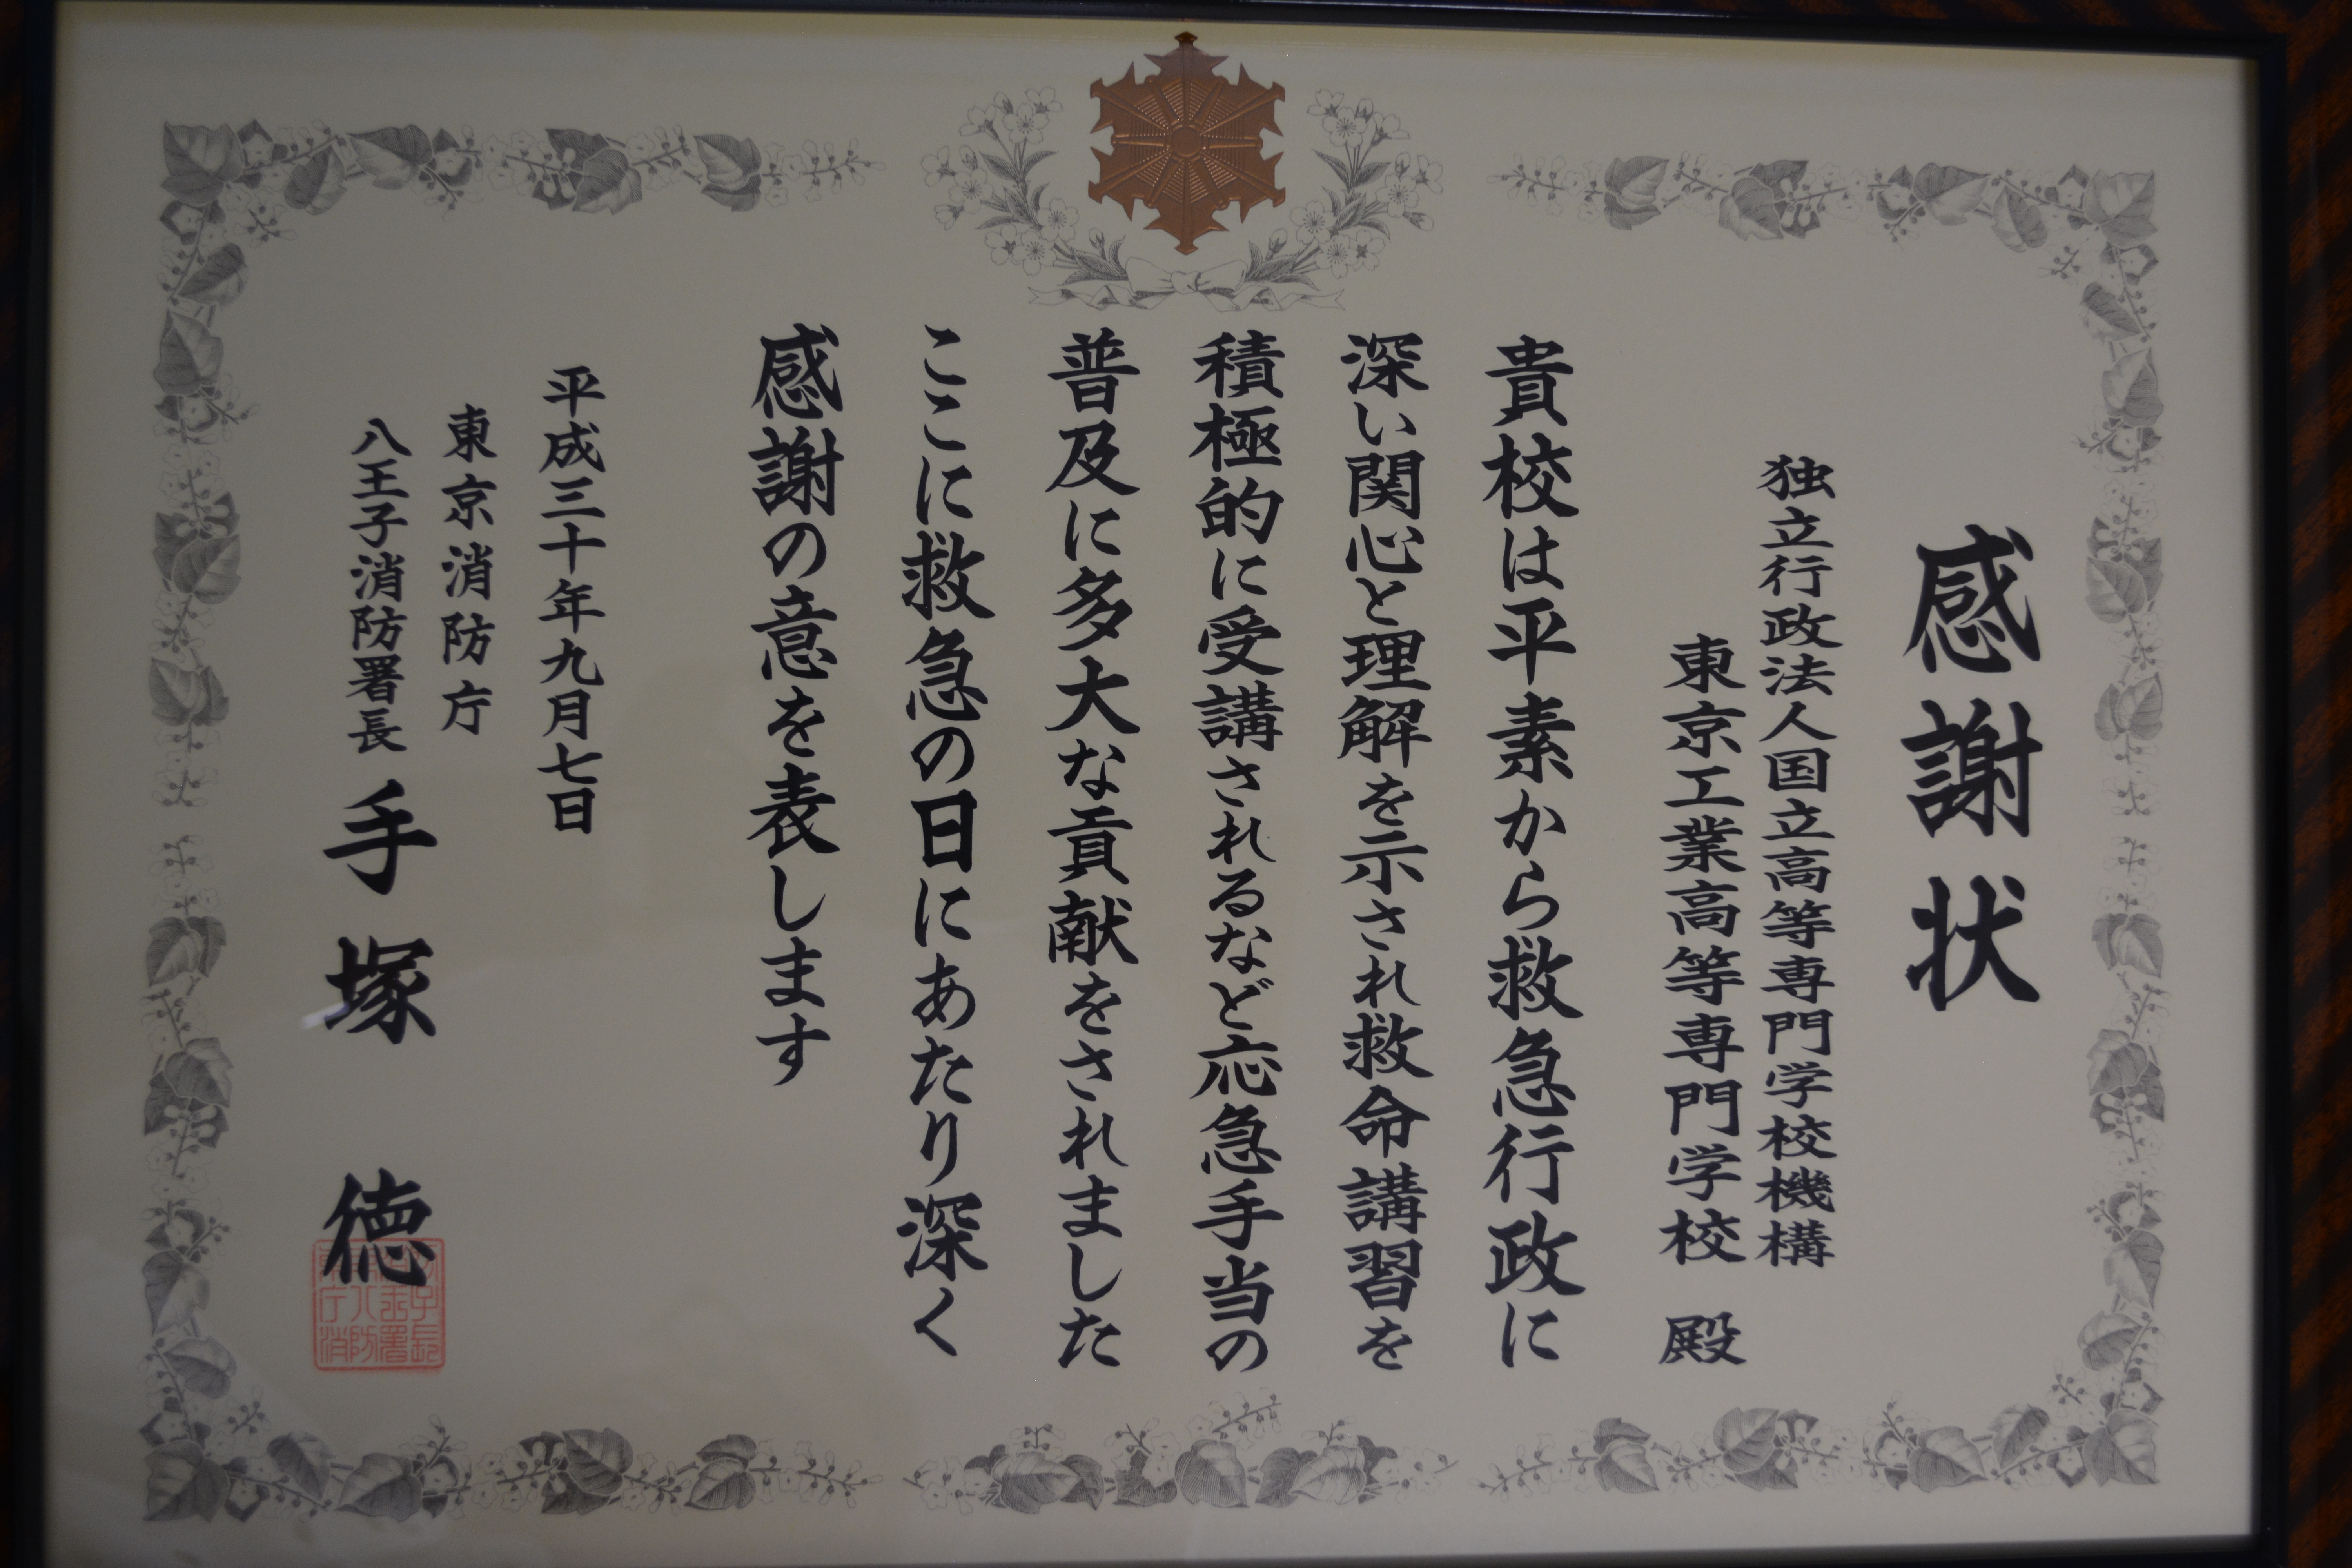 感謝状
独立行政法人国立高等専門学校機構
東京工業高等専門学校 殿
貴校は平素から救急行政に
深い関心と理解を示され救命講習を
積極的に受講されるなど応急手当の
普及に多大な貢献をされました
ここに救急の日にあたり深く
感謝の意を表します
平成三十年九月七日
東京消防庁
八王子消防署長 手塚 徳